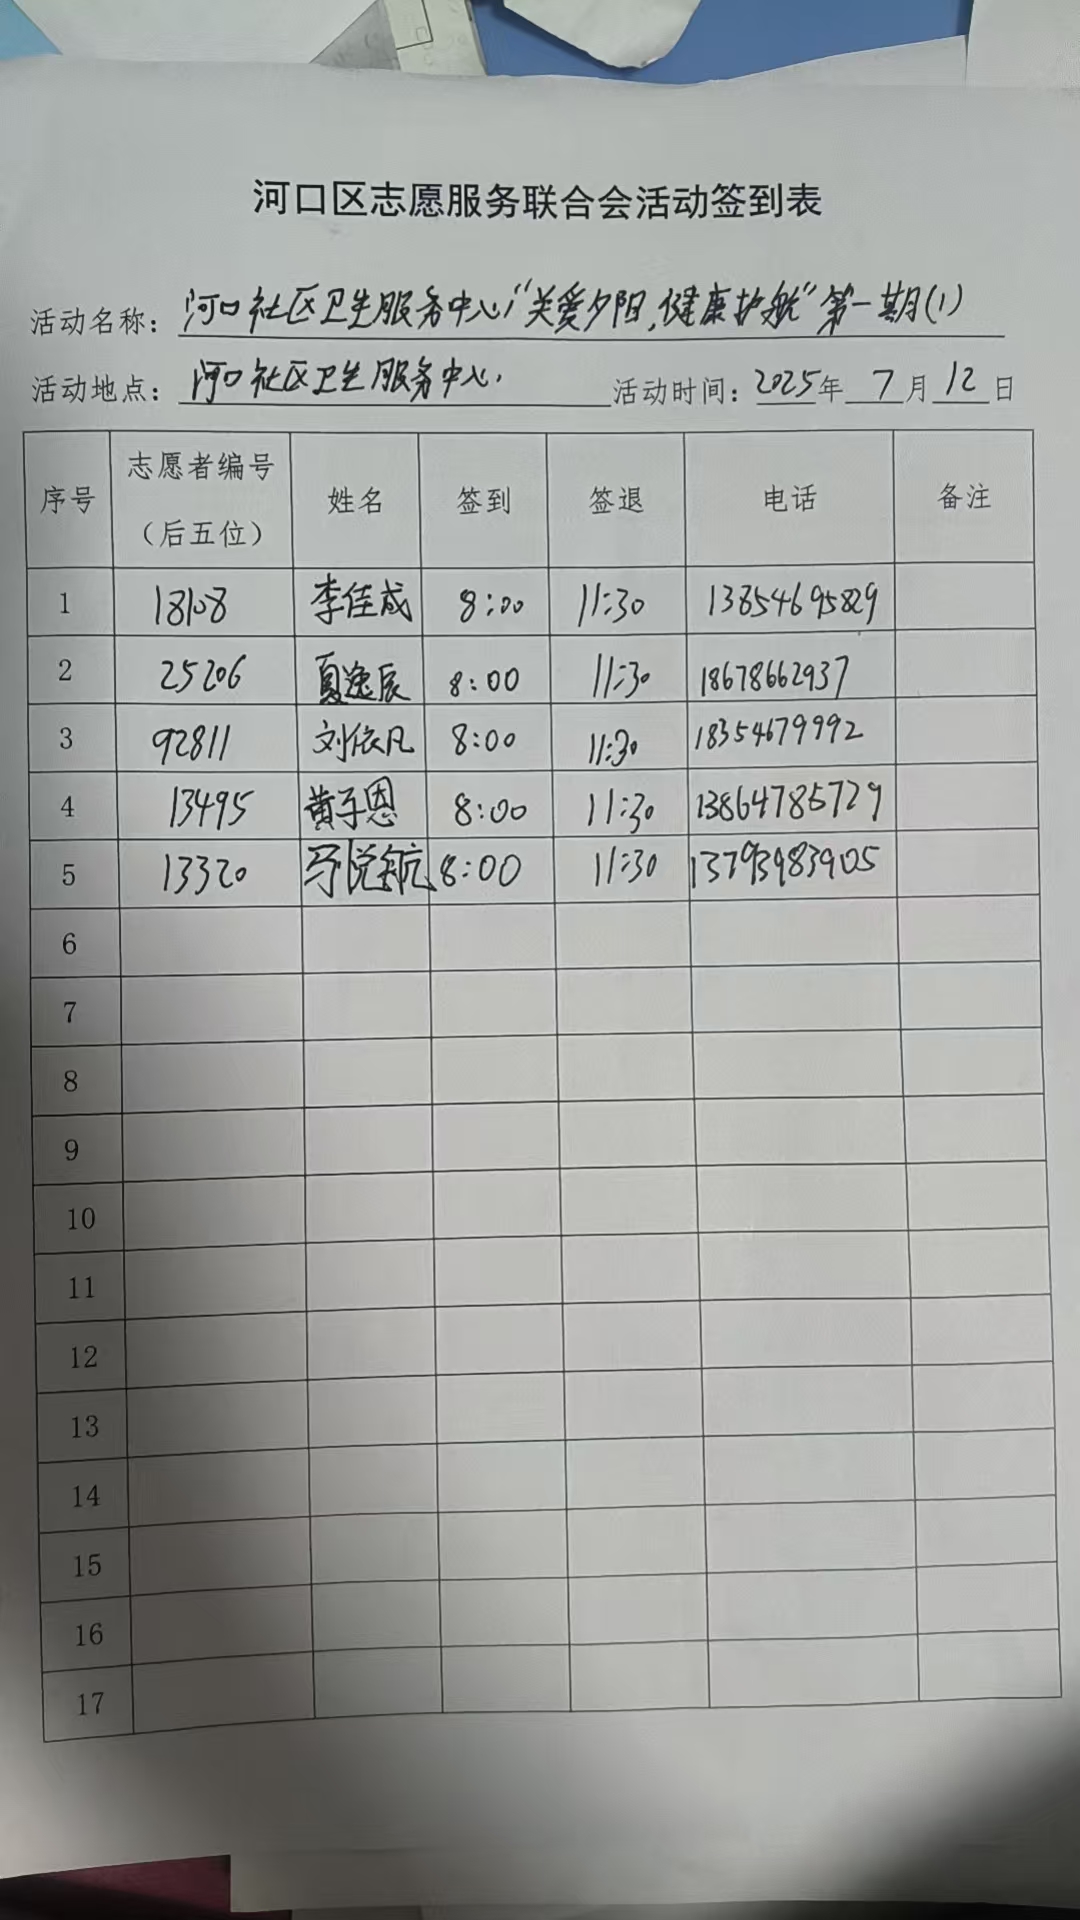 河口区志愿服务联合会活动签到表
活动名称：河口社区卫生服务中心"关爱夕阳,健康护航"第一期(1)
活动地点：河口社区卫生服务中心 活动时间：2025年7月12日
序号 志愿者编号（后五位） 姓名 签到 签退 电话 备注
1 18108 李佳成 8:00 11:30 13854695829
2 25206 夏逸辰 8:00 11:30 18678662937
3 92811 刘依凡 8:00 11:30 18354679992
4 13495 黄子恩 8:00 11:30 13864785729
5 13320 马悦航 8:00 11:30 13793983905
6
7
8
9
10
11
12
13
14
15
16
17